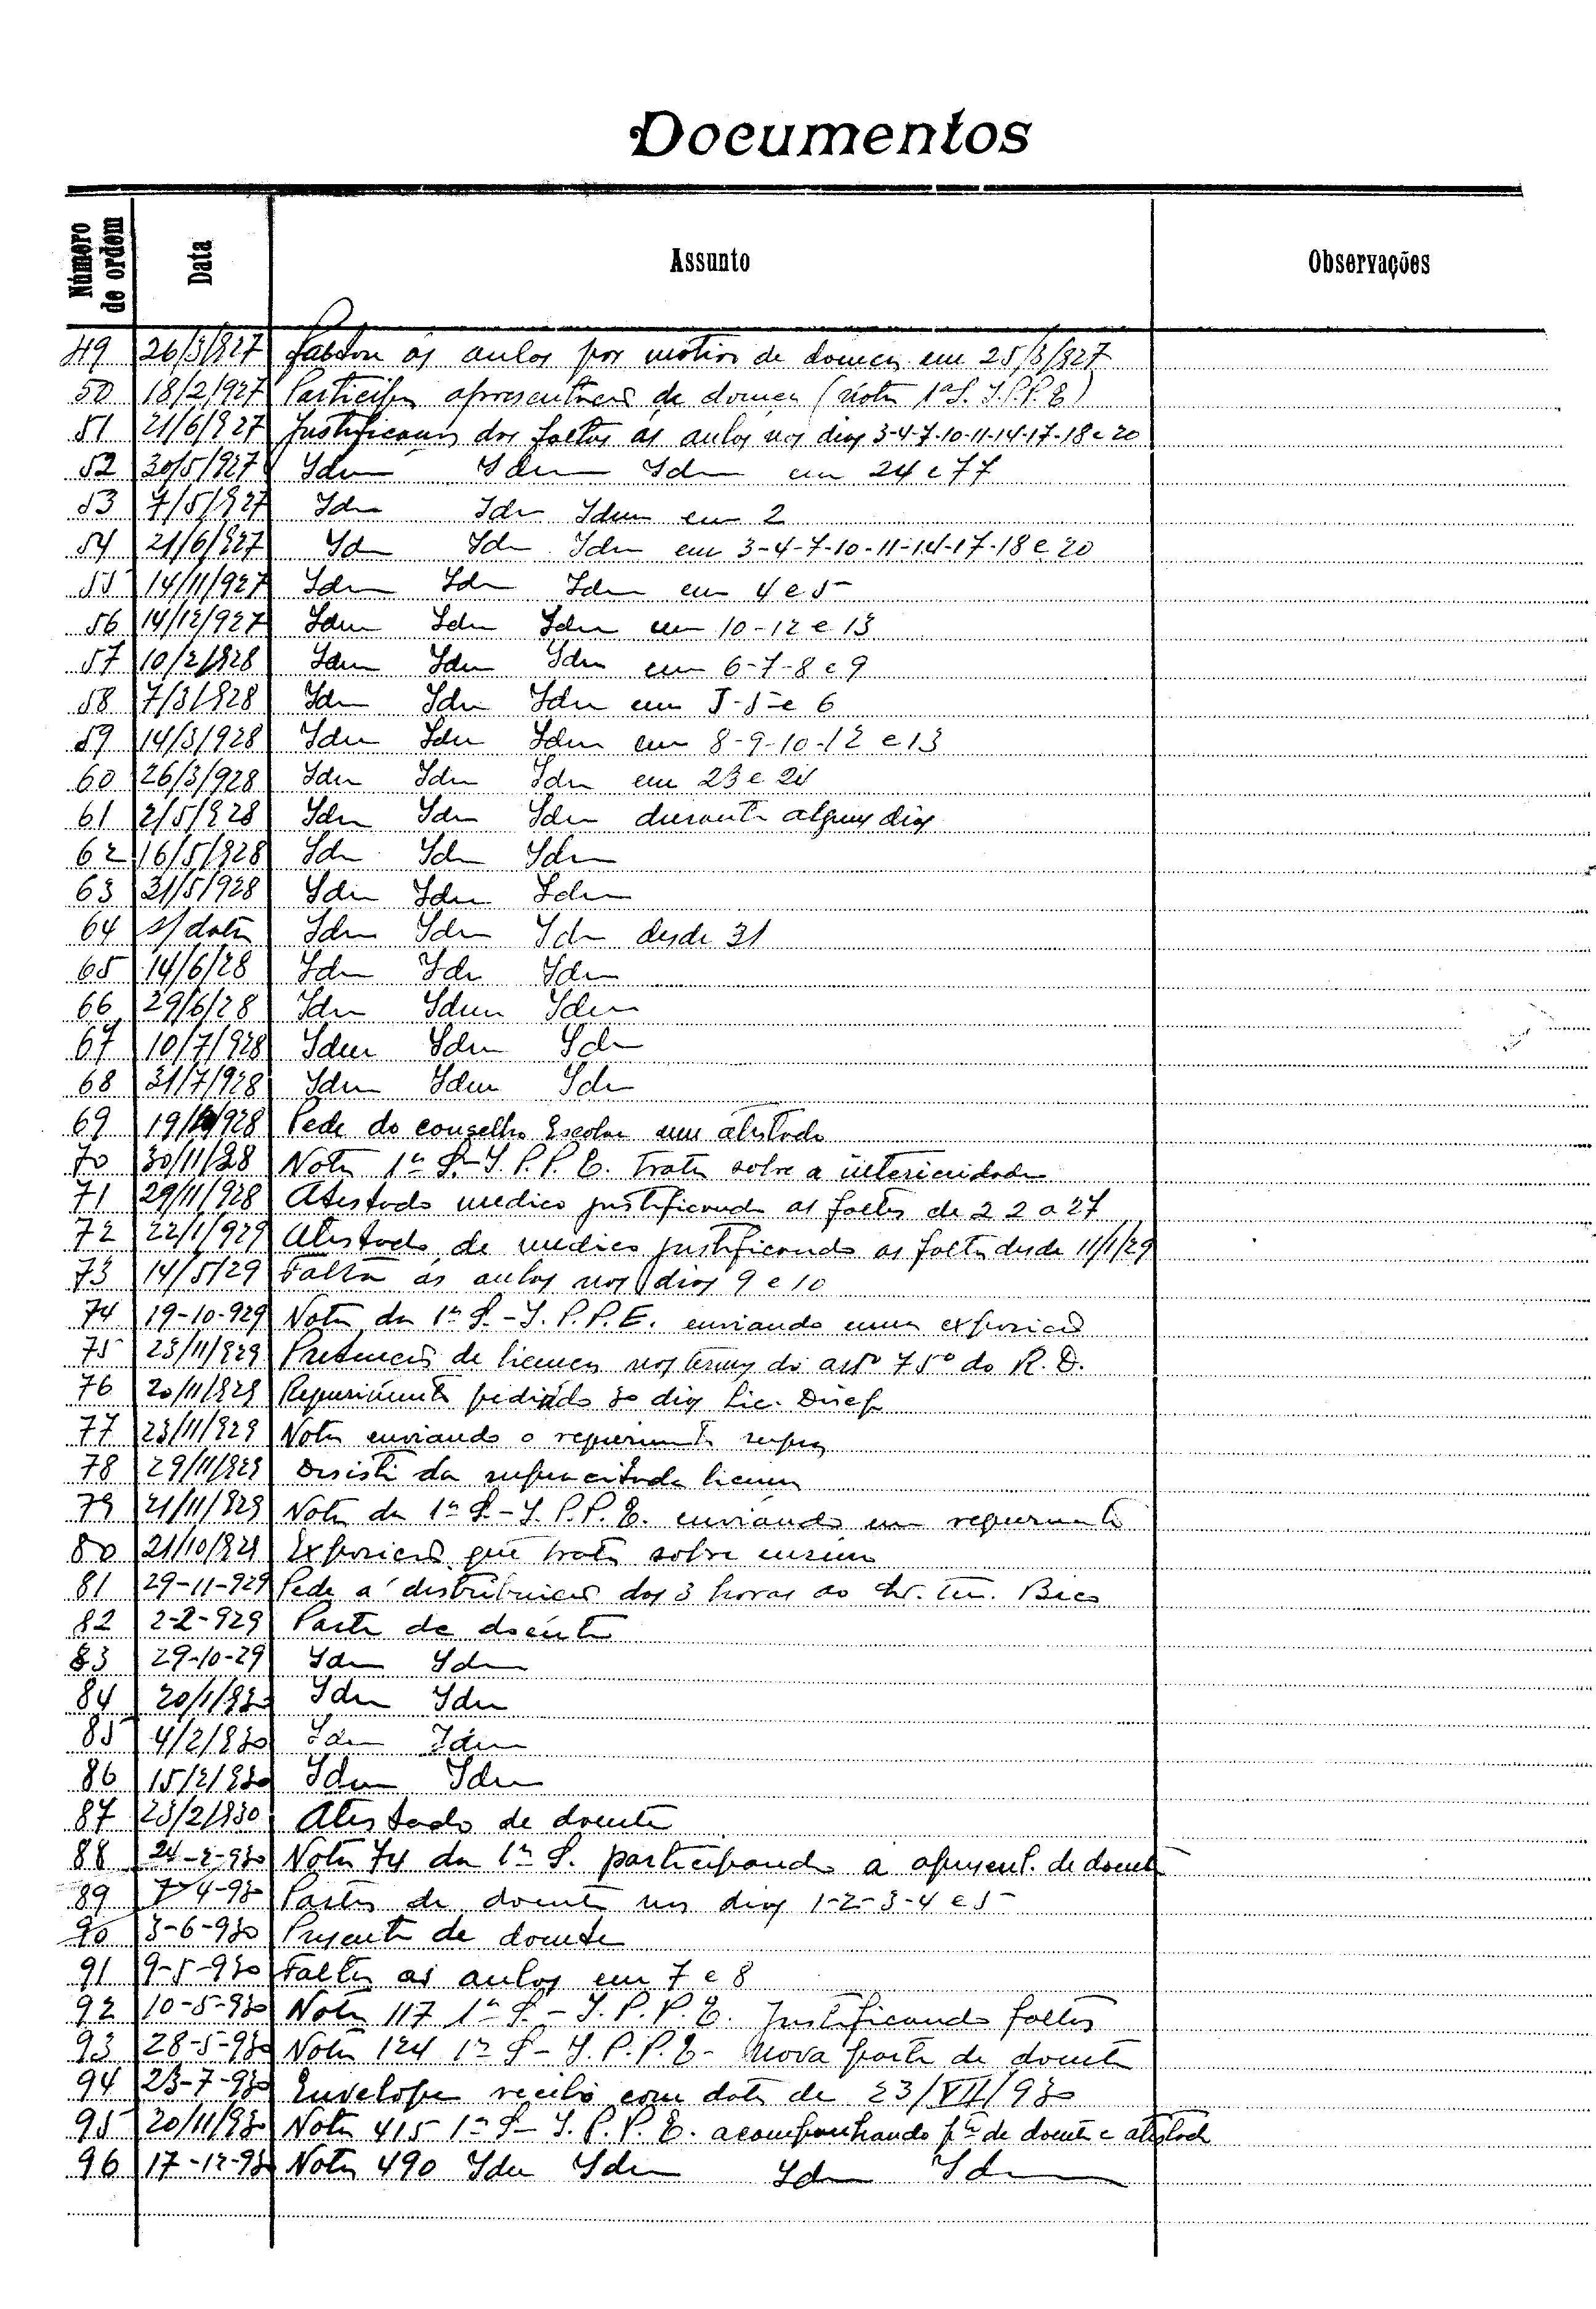 Documentos
Número de ordem Data Assunto Observações
49 26/3/927 Faltou ás aulas por motivo de doença em 25/3/927
50 18/2/927 Participa apresentação de doença (Nota 1ª S. I.P.P.E)
51 21/6/927 Justificação das faltas ás aulas nos dias 3-4-7-10-11-14-17-18 e 20
52 30/5/927 Idem Idem Idem em 24 e 77
53 7/5/927 Idem Idem Idem em 2
54 21/6/927 Idem Idem Idem em 3-4-7-10-11-14-17-18 e 20
55 14/11/927 Idem Idem Idem em 4 e 5
56 14/12/927 Idem Idem Idem em 10-12 e 13
57 10/2/928 Idem Idem Idem em 6-7-8 e 9
58 7/3/928 Idem Idem Idem em 5 e 6
59 14/3/928 Idem Idem Idem em 8-9-10-12 e 13
60 26/3/928 Idem Idem Idem em 23 e 24
61 2/5/928 Idem Idem Idem durante alguns dias
62 16/5/928 Idem Idem Idem
63 31/5/928 Idem Idem Idem
64 s/ data Idem Idem Idem desde 31
65 14/6/28 Idem Idem Idem
66 29/6/28 Idem Idem Idem
67 10/7/928 Idem Idem Idem
68 31/7/928 Idem Idem Idem
69 928 Pede do conselho Escolar um atestado
70 30/11/28 Nota 1ª S.-I.P.P.E. trata sobre a
71 29/11/928 Atestado medico justificando as faltas de 22 a 27
72 22/1/929 Atestado de medico justificando as faltas desde 11/1/29
73 14/5/29 Falta ás aulas nos dias 9 e 10
74 19-10-929 Nota da 1ª S.-I.P.P.E. enviando uma exposição
75 23/11/929 Pretenção de licença nos termos do artº 75º do R.D.
76 20/11/929 Requerimento pedindo 30 dias Lic. Discip
77 23/11/929 Nota enviando o requerimento supra
78 29/11/929 Desiste da supracitada licença
79 21/11/929 Nota da 1ª S.-I.P.P.E. enviando um requerimento
80 21/10/929 Exposição que trata sobre ensino
81 29-11-929 Pede a distribuição das 3 horas ao Sr. Ten. Bico
82 2-2-929 Parte de doente
83 29-10-29 Idem Idem
84 20/1/930 Idem Idem
85 4/2/930 Idem Idem
86 15/2/930 Idem Idem
87 23/2/930 Atestado de doente
88 24-2-930 Nota 74 da 1ª S. participando a apresent. de doente
89 7-4-930 Partes de doente nos dias 1-2-3-4 e 5
90 3-6-930 Presente de doente
91 9-5-930 Faltas ás aulas em 7 e 8
92 10-5-930 Nota 117 1ª S.-I.P.P.E. Justificando faltas
93 28-5-930 Nota 124 1ª S-I.P.P.E- Nova parte de doente
94 23-7-930 Envelope recibo com data de 23/VII/930
95 20/11/930 Nota 415 1ª S-I.P.P.E. acompanhando pte de doente e atestado
96 17-12-930 Nota 490 Idem Idem Idem Idem